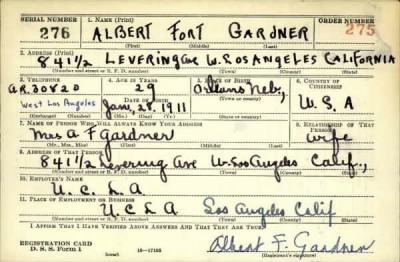 SERIAL NUMBER 1. NAME (Print) ORDER NUMBER
276 ALBERT FORT GARDNER 275
(First) (Middle) (Last)
2. ADDRESS (Print)
841 1/2 LEVERING AVE W. LOS ANGELES CALIFORNIA
(Number and street or R. F. D. number) (Town) (County) (State)
3. TELEPHONE 4. AGE IN YEARS 5. PLACE OF BIRTH 6. COUNTRY OF CITIZENSHIP
AR.30820 29 Orleans Nebr,
West Los Angeles DATE OF BIRTH (Town or county) U.S.A
Jan, 28, 1911
(Exchange) (Number) (Mo.) (Day) (Yr.) (State or country)
7. NAME OF PERSON WHO WILL ALWAYS KNOW YOUR ADDRESS 8. RELATIONSHIP OF THAT PERSON
Mrs A F Gardner wife
(Mr., Mrs., Miss) (First) (Middle) (Last)
9. ADDRESS OF THAT PERSON
841 1/2 Levering Ave W. Los Angeles Calif.,
(Number and street or R. F. D. number) (Town) (County) (State)
10. EMPLOYER'S NAME
U.C.L.A
11. PLACE OF EMPLOYMENT OR BUSINESS
U C L A Los Angeles Calif
(Number and street or R. F. D. number) (Town) (County) (State)
I AFFIRM THAT I HAVE VERIFIED ABOVE ANSWERS AND THAT THEY ARE TRUE.
REGISTRATION CARD
D. S. S. Form 1 16-17105 Albert F. Gardner
(over) (Registrant's signature)